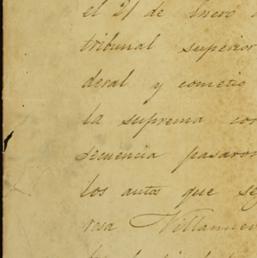 el 21 de Enero
tribunal superior
deral y cometio
la suprema cor
secuencia pasaron
los autos que se
rosa Villanuev